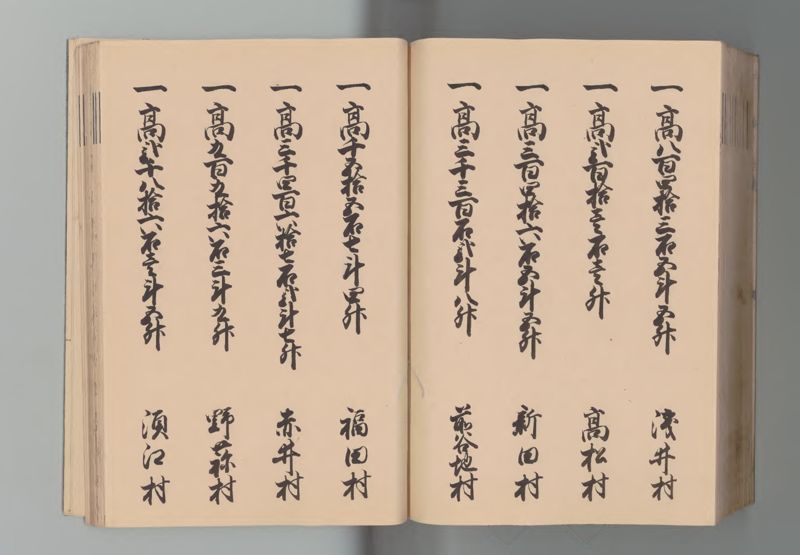 一高八百四拾三石五斗五升　浅井村
一高弐百拾壱石壱升　高松村
一高三百四拾六石五斗五升　新田村
一高三千三百石弐斗八升　前谷地村
一高千五拾五石七斗四升　福田村
一高三千四百六拾七石弐斗七升　赤井村
一高九百九拾六石三斗九升　野蒜村
一高弐千八拾六石壱斗五升　須江村